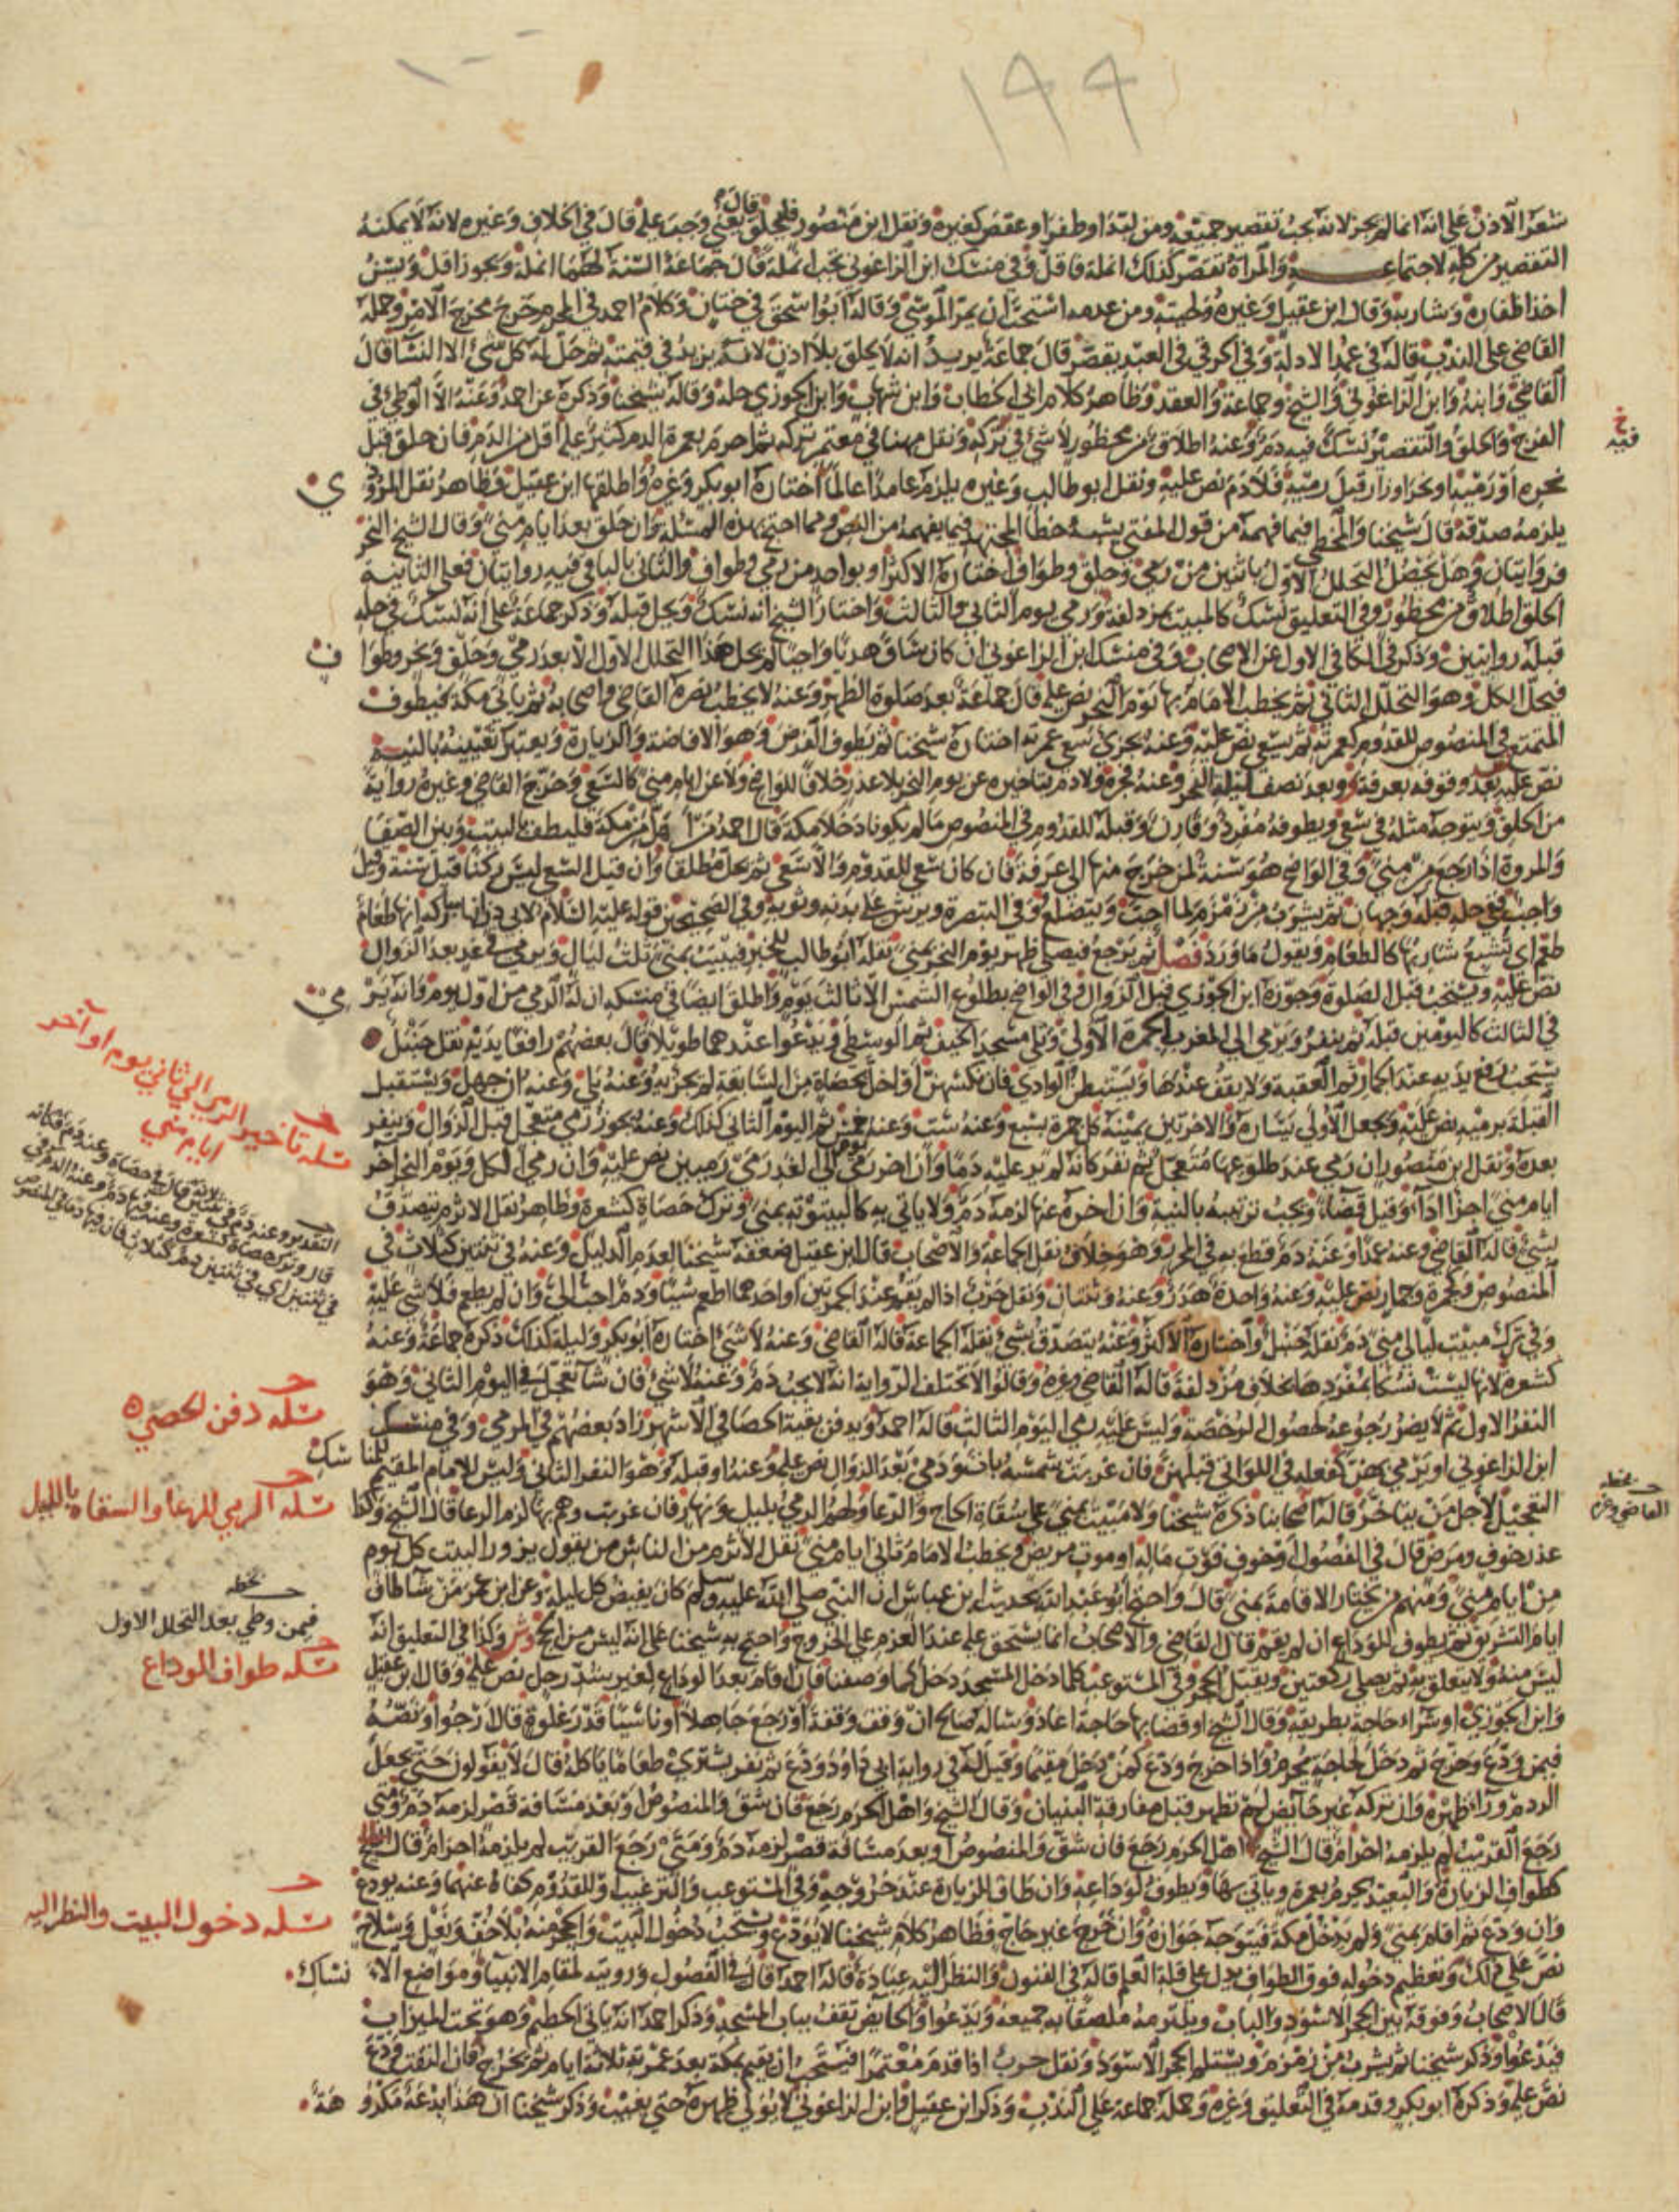 ١٩٩
شعر الأذن على أنه إنما لم يجز لأنه يجب تقصير جميعه ومن لبد أو ظفر أو عقص كغيره ونقل ابن منصور فليحلق قال يعني وجب عليه قال في الخلاف وغيره لأنه لا يمكنه
التقصير من كله لاجتماعه والمرأة تقصر كذلك أنملة فأقل وفي منسك ابن الزاغوني يجب أنملة قال جماعة السنة لهما أنملة ويجوز أقل ويسن
أخذ أظفاره وشاربه وقال ابن عقيل وغيره ولحيته ومن عدمه استحب أن يمر الموسى وقاله أبو إسحق في ختان وكلام أحمد في المحرم خرج مخرج الأمر وحمله
القاضي على الندب قاله في عمد الأدلة وفي الخرقي في العبد يقصر قال جماعة يريد أنه لا يحلق بلا إذن لأنه يزيد في قيمته ثم حل له كل شيء إلا النساء قال
القاضي وابنه وابن الزاغوني والشيخ وجماعة والعقد وظاهر كلام أبي الخطاب وابن شهاب وابن الجوزي حله وقاله شيخنا وذكره عن أحمد وعنه إلا الوطئ في
الفرج والحلق والتقصير نسك فيه دم وعنه إطلاق من محظور لا شيء في تركه ونقل مهنا في معتمر تركه ثم أحرم بعمرة الدم كثير عليه أقل من الدم فإن حلق قبل
نحره أو رميه أو نحر أو زار قبل رميه فلا دم نص عليه ونقل أبو طالب وغيره يلزم عامدا عالما اختاره أبو بكر وغيره وأطلقها ابن عقيل وظاهر نقل المروذي
يلزمه صدقة قال شيخنا والمخطي فيما فهمه من قول المفتي يشبه خطأ المجتهد فيما يفهمه من النص ومما احتج بهذه المسئلة وإن حلق بعد أيام منى وقال الشيخ النحر
فروايتان وهل يحصل التحلل الأول باثنين من رمي وحلق وطواف اختاره الأكثر أو بواحد من رمي وطواف والثاني بالباقي فيه روايتان فعلى الثانية
الحلق إطلاق من محظور وفي التعليق نسك كالمبيت بمزدلفة ورمي يوم الثاني والثالث واختار الشيخ أنه نسك ويحل قبله وذكر جماعة على أنه نسك في حله
قبله روايتين وذكر في الكافي الأول عن الأصحاب وفي منسك ابن الزاغوني إن كان ساق هديا واجبا لم يحل هذا التحلل الأول إلا بعد رمي وحلق ونحر وطواف
فيحل الكل وهو التحلل الثاني ثم يخطب الإمام بها يوم النحر نص عليه قال جماعة بعد صلوة الظهر وعنه لا يخطب نصره القاضي وأصحابه ثم يأتي مكة فيطوف
المتمتع في المنصوص للقدوم كعمرته ثم يسعى نص عليه وعنه يجزئ سعي عمرته اختاره شيخنا ثم يطوف الفرض وهو الإفاضة والزيارة ويعتبر تعيينه بالنية
نص عليه بعد وقوفه بعرفة وبعد نصف ليلة النحر وعنه فجره ولا دم بتأخيره عن يوم النحر بلا عذر خلافا للواضح ولا عن أيام منى كالسعي وخرج القاضي وغيره رواية
من الحلق ويتوجه مثله في سعي ويطوفه مفرد وقارن وقبله للقدوم في المنصوص ما لم يكونا دخلا مكة قال أحمد من أهل من مكة فليطف بالبيت وبين الصفا
والمروة إذا رجع من منى وفي الواضح هو سنة لمن خرج منها إلى عرفة فإن كان سعى للقدوم وإلا سعى ثم يحل مطلقا وإن قيل السعي ليس ركنا قيل سنة وقيل
واجب ففي حله قبله وجهان ثم يشرب من زمزم لما أحب ويتضلع وفي التبصرة ويرش على بدنه وثوبه وفي الصحيحين قوله عليه السلام لأبي ذر إنها مباركة إنها طعام
طعم أي تشبع شاربها كالطعام ويقول ما ورد فصل ثم يرجع فيصلي ظهر يوم النحر بمنى نقله أبو طالب للخبر فيبيت بمنى ثلث ليال ويرمي في غد بعد الزوال
نص عليه ويستحب قبل الصلوة وجوزه ابن الجوزي قبل الزوال وفي الواضح بطلوع الشمس إلا ثالث يوم وأطلق أيضا في منسكه أن له الرمي من أول يوم وأنه يرمي
في الثالث كاليومين قبله ثم ينفر ويرمي إلى المغرب الجمرة الأولى وتلي مسجد الخيف ثم الوسطى ويدعوا عندهما طويلا قال بعضهم رافعا يديه نقل حنبل
يستحب رفع يديه عند الجمار ثم العقبة ولا يقف عندها ويستبطن الوادي فإن نكسهن أو أخل بحصاة من السابعة لم يجزيه وعنه بلى وعنه إن جهل ويستقبل
القبلة يرميه نص عليه ويجعل الأولى يساره والأخرتين يمينه كل جمرة بسبع وعنه ست وعنه خمس ثم اليوم الثاني كذلك وعنه يجوز رمي متعجل قبل الزوال وينفر
بعده ونقل ابن منصور إن رمى عند طلوعها متعجل ثم نفر كأنه لم ير عليه دما وإن أخر رمي يوم إلى الغد رمى رميين نص عليه وإن رمى الكل ويوم النحر آخر
أيام منى أجزأ أداء وقيل قضاء ويجب ترتيبه بالنية وإن أخره عنها لزمه دم ولا يأتي به كالبيتوتة بمنى وترك حصاة كشعرة وظاهر نقل الأثرم يتصدق
بشيء قاله القاضي وعنه عمدا وعنه دم قطع به في المحرر وهو خلاف نقل الجماعة والأصحاب قال ابن عقيل ضعفه شيخنا لعدم الدليل وعنه في ثنتين كثلاث في
المنصوص فكجمرة وجمار نص عليه وعنه واحدة هدر وعنه وثنتان ونقل حرب إذا لم يقم عند الجمرتين أو إحداهما أطعم شيئا ودم أحب إلي وإن لم يطعم فلا شيء عليه
وفي ترك مبيت ليالي منى دم نقله حنبل واختاره الأكثر وعنه يتصدق بشيء نقله الجماعة قاله القاضي وعنه لا شيء اختاره أبو بكر وليلة كذلك ذكره جماعة وعنه
كشعرة لأنها ليست نسكا بمفردها بخلاف مزدلفة قاله القاضي وغيره وقالوا لا تختلف الرواية أنه لا يجب دم وعنه لا شيء فإن شاء تعجل في اليوم الثاني وهو
النفر الأول ثم لا يضر رجوعه لحصول الرخصة وليس عليه رمي اليوم الثالث قاله أحمد ويدفن بقية الحصا في الأشهر زاد بعضهم في المرمى وفي منسك
ابن الزاغوني أو يرمي بهن كفعله في اللواتي قبلهن فإن غربت شمسه بات ورمى بعد الزوال نص عليه وعنه أو قبله وهو النفر الثاني وليس للإمام المقيم للمناسك
التعجيل لأجل من يتأخر قاله أصحابنا ذكره شيخنا ولا مبيت بمنى على سقاة الحاج والرعا ولهم الرمي بليل ونهار فإن غربت وهم بها لزم الرعا قال الشيخ وكذا
عذر خوف ومرض قال في الفصول وخوف فوت ماله أو موت مريض ويخطب الإمام ثاني أيام منى نقل الأثرم من الناس من يقول يزور البيت كل يوم
من أيام منى ومنهم من يختار الإقامة بمنى قال واحتج أبو عبد الله بحديث ابن عباس أن النبي صلى الله عليه وسلم كان يفيض كل ليلة وعن ابن عمر من شاء طاف
أيام التشريق ثم يطوف للوداع إن لم يقم قال القاضي والأصحاب إنما يستحق عليه عند العزم على الخروج واحتج به شيخنا على أنه ليس من الحج وش وكذا في التعليق أنه
ليس منه ولا يتعلق به ثم يصلي ركعتين ويقبل الحجر وفي المستوعب كلما دخل المسجد دخل كما وصفنا فإن أقام بعد الوداع لغير شد رحل نص عليه وقال ابن عقيل
وابن الجوزي أو شراء حاجة بطريقه وقال الشيخ أو قضا بها حاجة أعاد وسأله صالح إن وقف وقفة أو رجع جاهلا أو ناسيا قدر غلوة قال أرجو أو نصه
فيمن ودع وخرج ثم دخل لحاجة يحرم وإذا خرج ودع كمن دخل مقيما وقيل له في رواية أبي داود ودع ثم نفر يشتري طعاما يأكله قال لا يقولون حتى يجعل
الردم وراء ظهره وإن تركه غير حائض لم تطهر قبل مفارقة البنيان وقال الشيخ وأهل الحرم رجع فإن شق والمنصوص أو بعد مسافة قصر لزمه دم ومتى
رجع القريب لم يلزمه إحرام قال الشيخ أهل الحرم رجع فإن شق والمنصوص أو بعد مسافة قصر لزمه دم ومتى رجع القريب لم يلزمه إحرام قال الشيخ
كطواف الزيارة والبعيد يحرم بعمرة ويأتي بها ويطوف لوداعه وإن طاف الزيارة عند خروجه وفي المستوعب والترغيب أو للقدوم كفاه عنهما وعنه يودع
وإن ودع ثم أقام بمنى ولم يدخل مكة فيتوجه جوازه وإن خرج غير حاج فظاهر كلام شيخنا لا يودع ويستحب دخول البيت والحجر منه بلا خف ونعل وسلاح
نص على ذلك وتعظيم دخوله فوق الطواف يدل على قلة العلم قاله في الفنون والنظر إليه عبادة قاله أحمد قال في الفصول ورؤيته لمقام الأنبياء ومواضع الأنساك
قال الأصحاب ووقوفه بين الحجر الأسود والباب ويلتزمه ملصقا به جميعه ويدعوا والحائض تقف بباب المسجد وذكر أحمد أنه يأتي الحطيم وهو تحت الميزاب
فيدعوا وذكر شيخنا ثم يشرب من زمزم ويستلم الحجر الأسود ونقل حرب إذا قدم معتمرا فيستحب أن يقيم بمكة بعد عمرته ثلاثة أيام ثم يخرج فإن التفت ودع
نص عليه وذكره أبو بكر وقدمه في التعليق وغيره وحمله جماعة على الندب وذكر ابن عقيل وابن الزاغوني لا يولي ظهره حتى يغيب وذكر شيخنا أن هذا بدعة مكروهة
خ
فيه
مسئلة تأخير الرمي إلى ثاني يوم أو آخر
أيام منى
مسئلة دفن الحصى
مسئلة الرمي للرعا والسقاة بالليل
بخطه
القاضي وغيره
بخطه
فيمن وطي بعد التحلل الأول
مسئلة طواف الوداع
مسئلة دخول البيت والنظر إليه